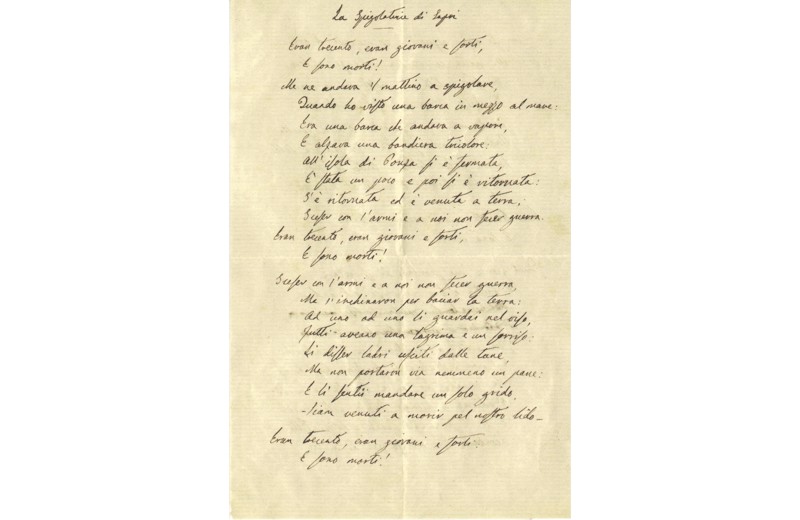 La Spigolatrice di Sapri
Eran trecento, eran giovani e forti,
E sono morti!
Me ne andava il mattino a spigolare,
Quando ho visto una barca in mezzo al mare:
Era una barca che andava a vapore,
E alzava una bandiera tricolore:
All'isola di Ponza si è fermata,
È stata un poco e poi si è ritornata:
S'è ritornata ed è venuta a terra,
Sceser con l'armi e a noi non fecer guerra.
Eran trecento, eran giovani e forti,
E sono morti!
Sceser con l'armi e a noi non fecer guerra,
Ma s'inchinaron per baciar la terra:
Ad uno ad uno li guardai nel viso,
Tutti aveano una lagrima e un sorriso:
Li disser ladri usciti dalle tane,
Ma non portaron via nemmeno un pane:
E li sentii mandare un solo grido,
-Siam venuti a morir pel nostro lido-
Eran trecento, eran giovani e forti
E sono morti!